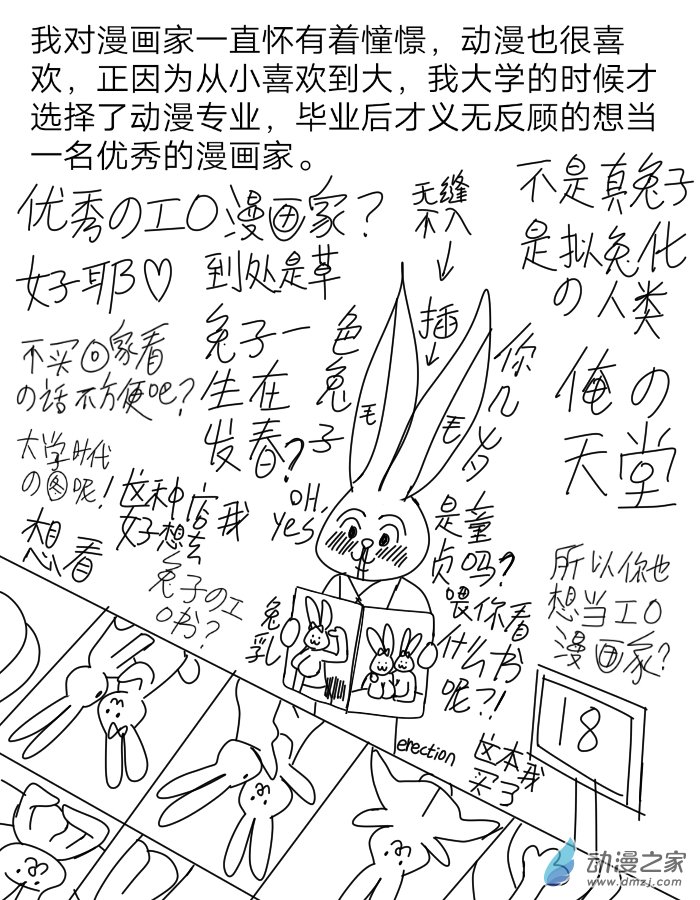 我对漫画家一直怀有着憧憬，动漫也很喜
欢，正因为从小喜欢到大，我大学的时候才
选择了动漫专业，毕业后才义无反顾的想当
一名优秀的漫画家。
优秀の工口漫画家？
好耶♡
到处是草
无缝
不入
插
不是真兔子
是拟兔化
の人类
不买回家看
の话不方便吧？
兔子一
生在
发春？
色
兔
子
毛
毛
你
几
岁
俺の
天堂
大学时代
の图呢！
想看
这种店我
好想去
OH,
yes
是童
贞吗？
兔子の工
口书？
兔
乳
喂你看
什么书
呢？！
所以你也
想当工口
漫画家？
18
erection
这本我
买了
动漫之家
www.dmzj.com